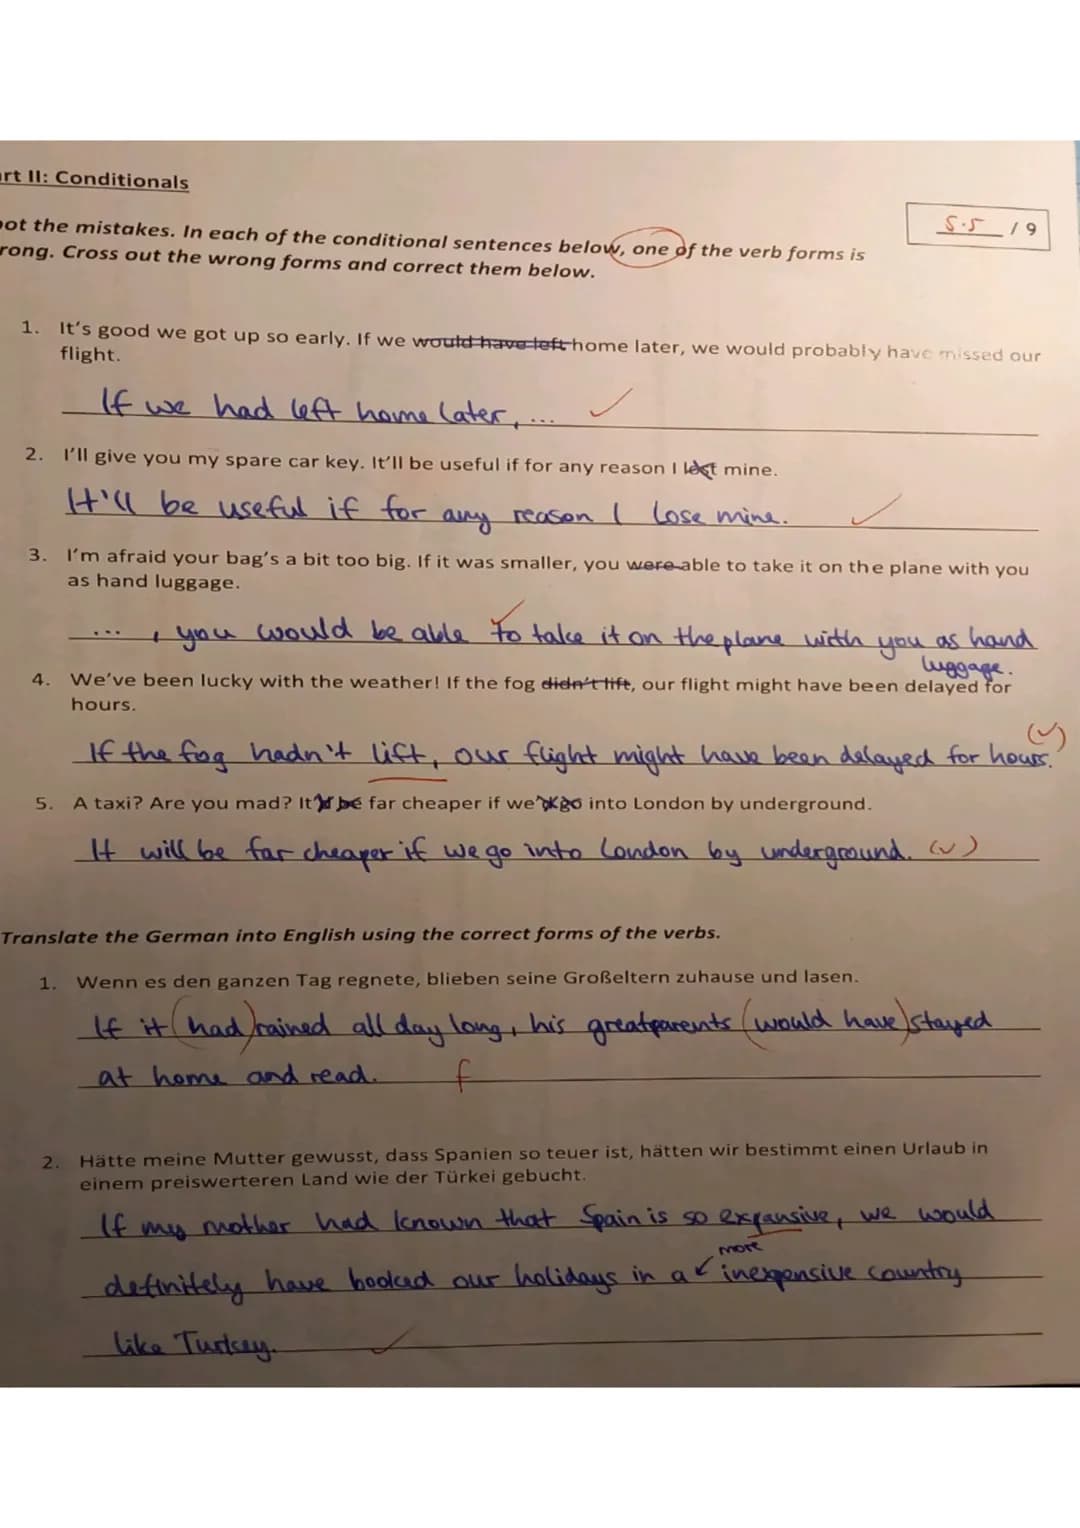 rt II: Conditionals
5.5 / 9
ot the mistakes. In each of the conditional sentences below, one of the verb forms is
rong. Cross out the wrong forms and correct them below.
1. It's good we got up so early. If we would have left home later, we would probably have missed our
flight.
If we had left home later, ...
2. I'll give you my spare car key. It'll be useful if for any reason I lost mine.
It'll be useful if for any reason I lose mine.
3. I'm afraid your bag's a bit too big. If it was smaller, you were able to take it on the plane with you
as hand luggage.
..., you would be able to take it on the plane with you as hand
luggage.
4. We've been lucky with the weather! If the fog didn't lift, our flight might have been delayed for
hours.
If the fog hadn't lift, our flight might have been delayed for hours.
5. A taxi? Are you mad? It be far cheaper if we go into London by underground.
It will be far cheaper if we go into London by underground.
Translate the German into English using the correct forms of the verbs.
1. Wenn es den ganzen Tag regnete, blieben seine Großeltern zuhause und lasen.
If it (had) rained all day long, his greatparents (would have) stayed
at home and read. f
2. Hätte meine Mutter gewusst, dass Spanien so teuer ist, hätten wir bestimmt einen Urlaub in
einem preiswerteren Land wie der Türkei gebucht.
If my mother had known that Spain is so expansive, we would
more
definitely have booked our holidays in a inexpensive country
like Turkey.